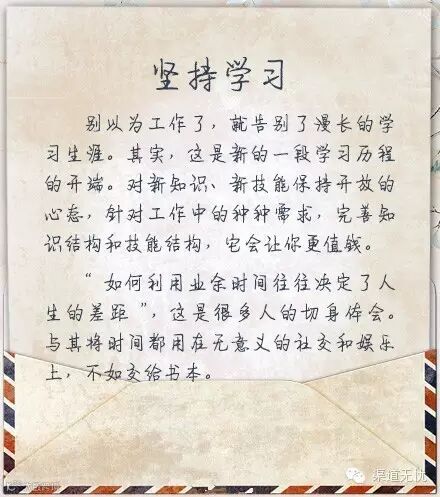 坚持学习
别以为工作了，就告别了漫长的学
习生涯。其实，这是新的一段学习历程
的开端。对新知识、新技能保持开放的
心态，针对工作中的种种需求，完善知
识结构和技能结构，它会让你更值钱。
“如何利用业余时间往往决定了人
生的差距”，这是很多人的切身体会。
与其将时间都用在无意义的社交和娱乐
上，不如交给书本。
渠道无忧